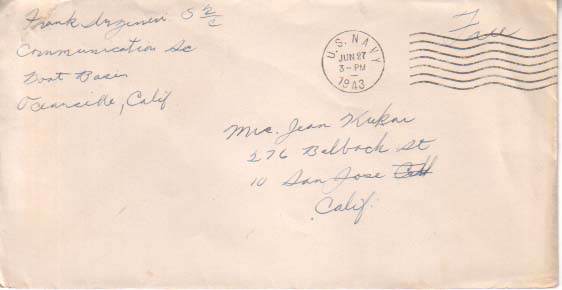 Frank S 2/c
Communication Sc
Boat Basin
Oceanside, Calif
U.S. NAVY
JUN 27
3-PM
1943
Free
Mrs. Jean Kukar
276 Balbach St
10 San Jose
Calif.